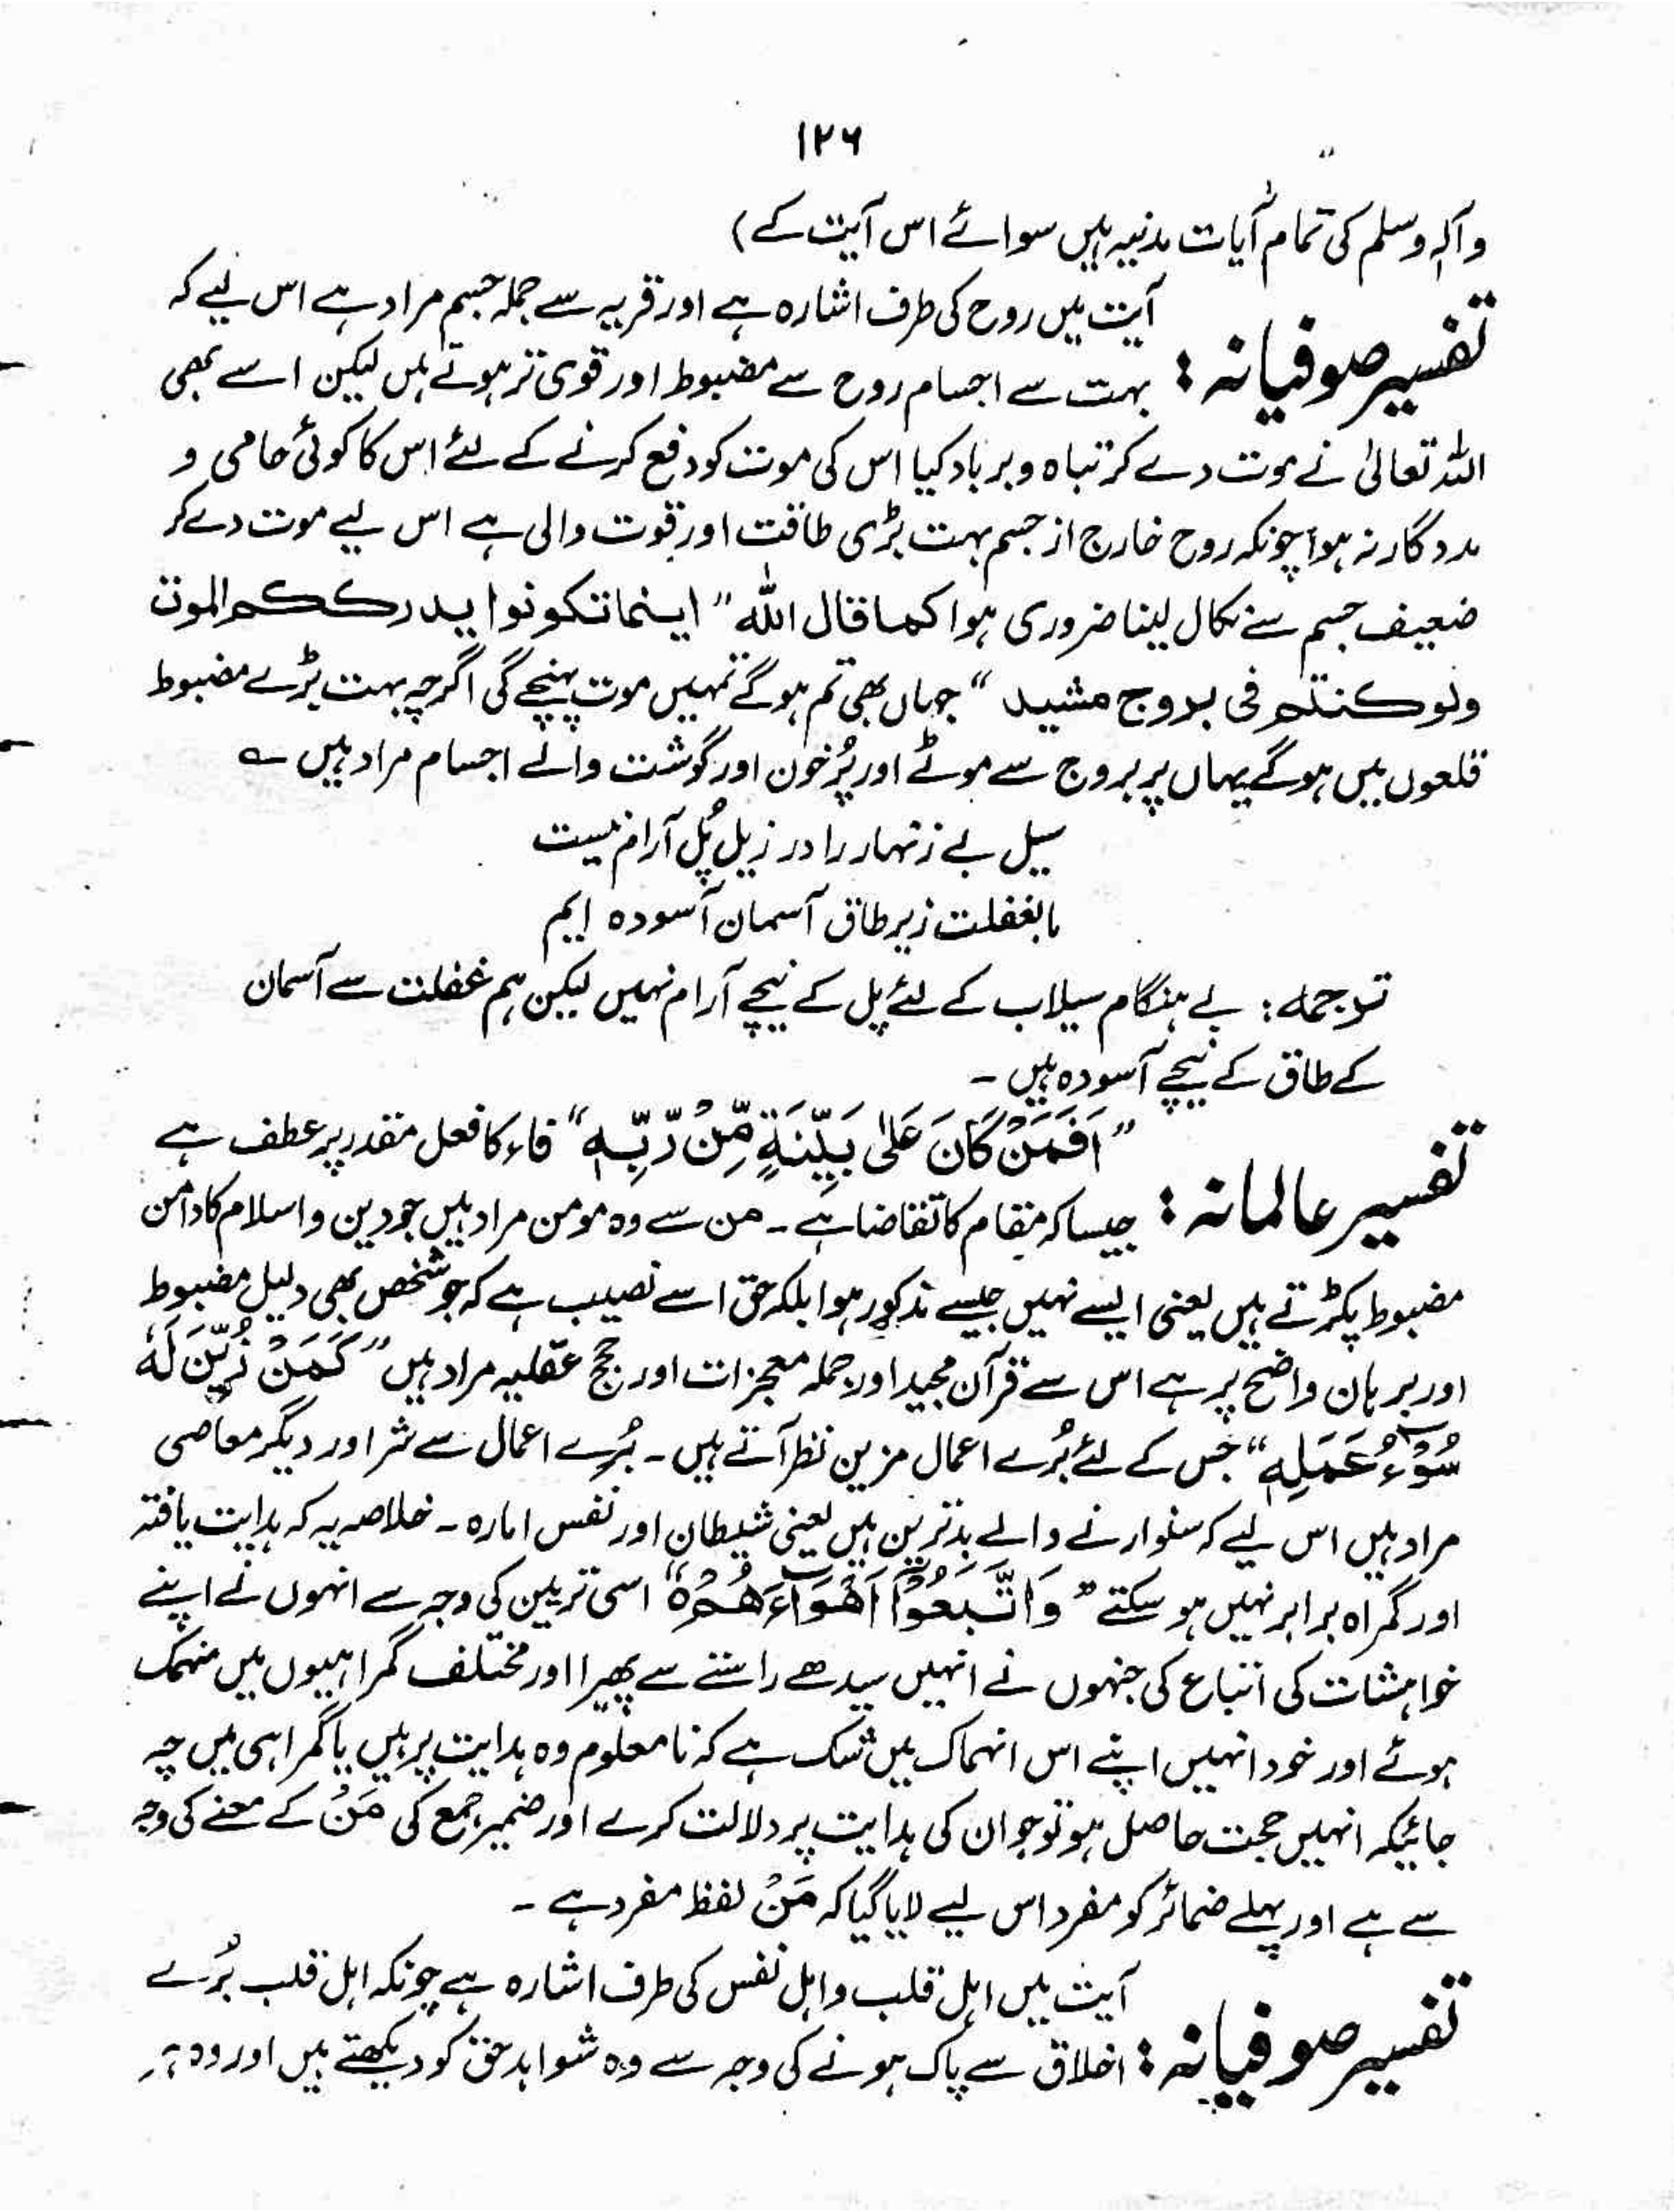 ۱۲۶
وآلہٖ وسلم کی تمام آیات مدنیہ ہیں سوائے اس آیت کے)
تفسیر صوفیانہ : آیت میں روح کی طرف اشارہ ہے اور قریہ سے جملہ جسم مراد ہے اس لیے کہ
بہت سے اجسام روح سے مضبوط اور قوی تر ہوتے ہیں لیکن اسے بھی
اللہ تعالیٰ نے موت دے کر تباہ و برباد کیا اس کی موت کو دفع کرنے کے لئے اس کا کوئی حامی و
مددگار نہ ہوا چونکہ روح خارج از جسم بہت بڑی طاقت اور قوت والی ہے اس لیے موت دے کر
ضعیف جسم سے نکال لینا ضروری ہوا کما قال اللہ " اینما تکونوا یدرککم الموت
ولو کنتم فی بروج مشید " جہاں بھی تم ہوگے تمہیں موت پہنچے گی اگرچہ بہت بڑے مضبوط
قلعوں میں ہوگے یہاں پر بروج سے موٹے اور پُر خون اور گوشت والے اجسام مراد ہیں ؎
سیل بے زنہار را در زیل پُل آرام نیست
ما بغفلت زیر طاق آسمان آسودہ ایم
ترجمہ : بے ہنگام سیلاب کے لئے پل کے نیچے آرام نہیں لیکن ہم غفلت سے آسمان
کے طاق کے نیچے آسودہ ہیں ۔
تفسیر عالمانہ : " اَفَمَنْ كَانَ عَلٰى بَيِّنَةٍ مِّنْ رَّبِّهٖ " فاء کا فعل مقدر پر عطف ہے
جیسا کہ مقام کا تقاضا ہے ۔ من سے وہ مومن مراد ہیں جو دین و اسلام کا دامن
مضبوط پکڑتے ہیں یعنی ایسے نہیں جیسے مذکور ہوا بلکہ حق اسے نصیب ہے کہ جو شخص بھی دلیل مضبوط
اور برہان واضح پر ہے اس سے قرآن مجید اور جملہ معجزات اور حجج عقلیہ مراد ہیں " كَمَنْ زُيِّنَ لَهٗ
سُوْٓءُ عَمَلِهٖ " جس کے لئے بُرے اعمال مزین نظر آتے ہیں ۔ بُرے اعمال سے شر اور دیگر معاصی
مراد ہیں اس لیے کہ سنوارنے والے بدترین ہیں یعنی شیطان اور نفس امارہ ۔ خلاصہ یہ کہ ہدایت یافتہ
اور گمراہ برابر نہیں ہو سکتے " وَاتَّبَعُوْٓا اَهْوَآءَهُمْ ہ " اسی تزیین کی وجہ سے انہوں نے اپنے
خواہشات کی اتباع کی جنہوں نے انہیں سیدھے راستے سے پھیرا اور مختلف گمراہیوں میں منہمک
ہوئے اور خود انہیں اپنے اس انہماک میں شک ہے کہ نامعلوم وہ ہدایت پر ہیں یا گمراہی میں چہ
جائیکہ انہیں حجت حاصل ہو تو جو ان کی ہدایت پر دلالت کرے اور ضمیر جمع کی مَنْ کے معنے کی وجہ
سے ہے اور پہلے ضمائر کو مفرد اس لیے لایا گیا کہ مَنْ لفظ مفرد ہے ۔
تفسیر صوفیانہ : آیت میں اہل قلب و اہل نفس کی طرف اشارہ ہے چونکہ اہل قلب بُرے
اخلاق سے پاک ہونے کی وجہ سے وہ شواہد حق کو دیکھتے ہیں اور وہ